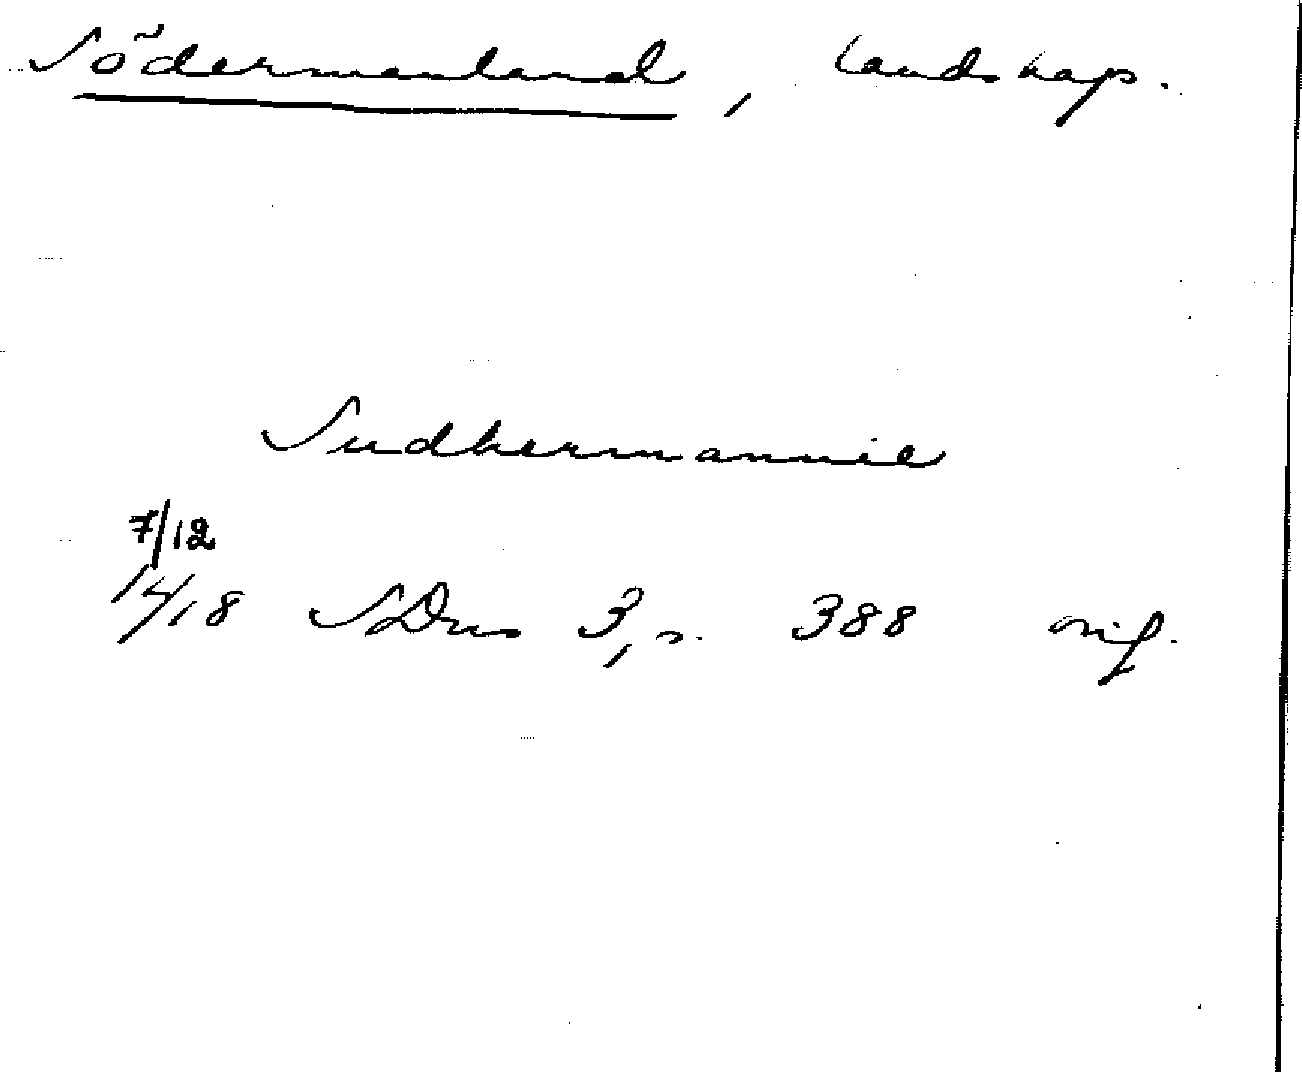 Södermanland, landskap.
Sudhermannie
7/12
1418 SDns 3, s. 388 orig.